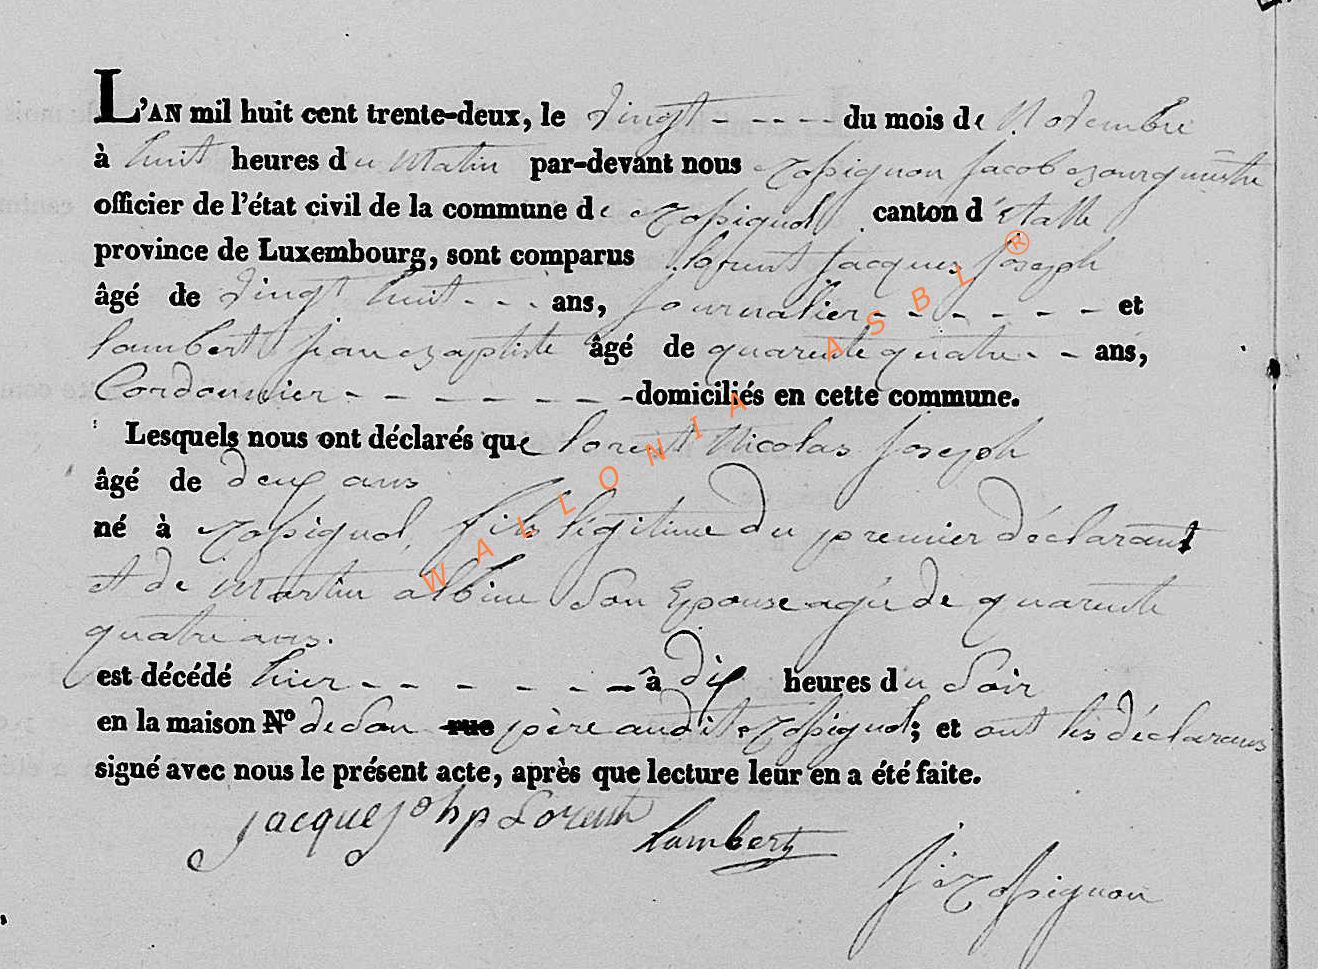 L'AN mil huit cent trente-deux, le vingt - - - - du mois de Novembre
à huit heures du Matin par-devant nous Rossignon jacob Bourgmestre
officier de l'état civil de la commune de Rossignol canton d'étalle
province de Luxembourg, sont comparus lorent jacques joseph
âgé de vingt huit - - - ans, journalier - - - - - - et
lambert jean Baptiste âgé de quarente quatre - - ans,
Cordonnier - - - - - - - domiciliés en cette commune.
Lesquels nous ont déclarés que lorent Nicolas joseph
âgé de deux ans
né à Rossignol, fils légitime du premier déclarant
et de Martin albine son Epouse agée de quarente
quatre ans.
est décédé hier - - - - - - à dix heures du soir
en la maison N° de son rue père audit Rossignol; et ont les déclarans
signé avec nous le présent acte, après que lecture leur en a été faite.
jacque johp Lorent lambert
j Rossignon
WALLONIA ASBL ®